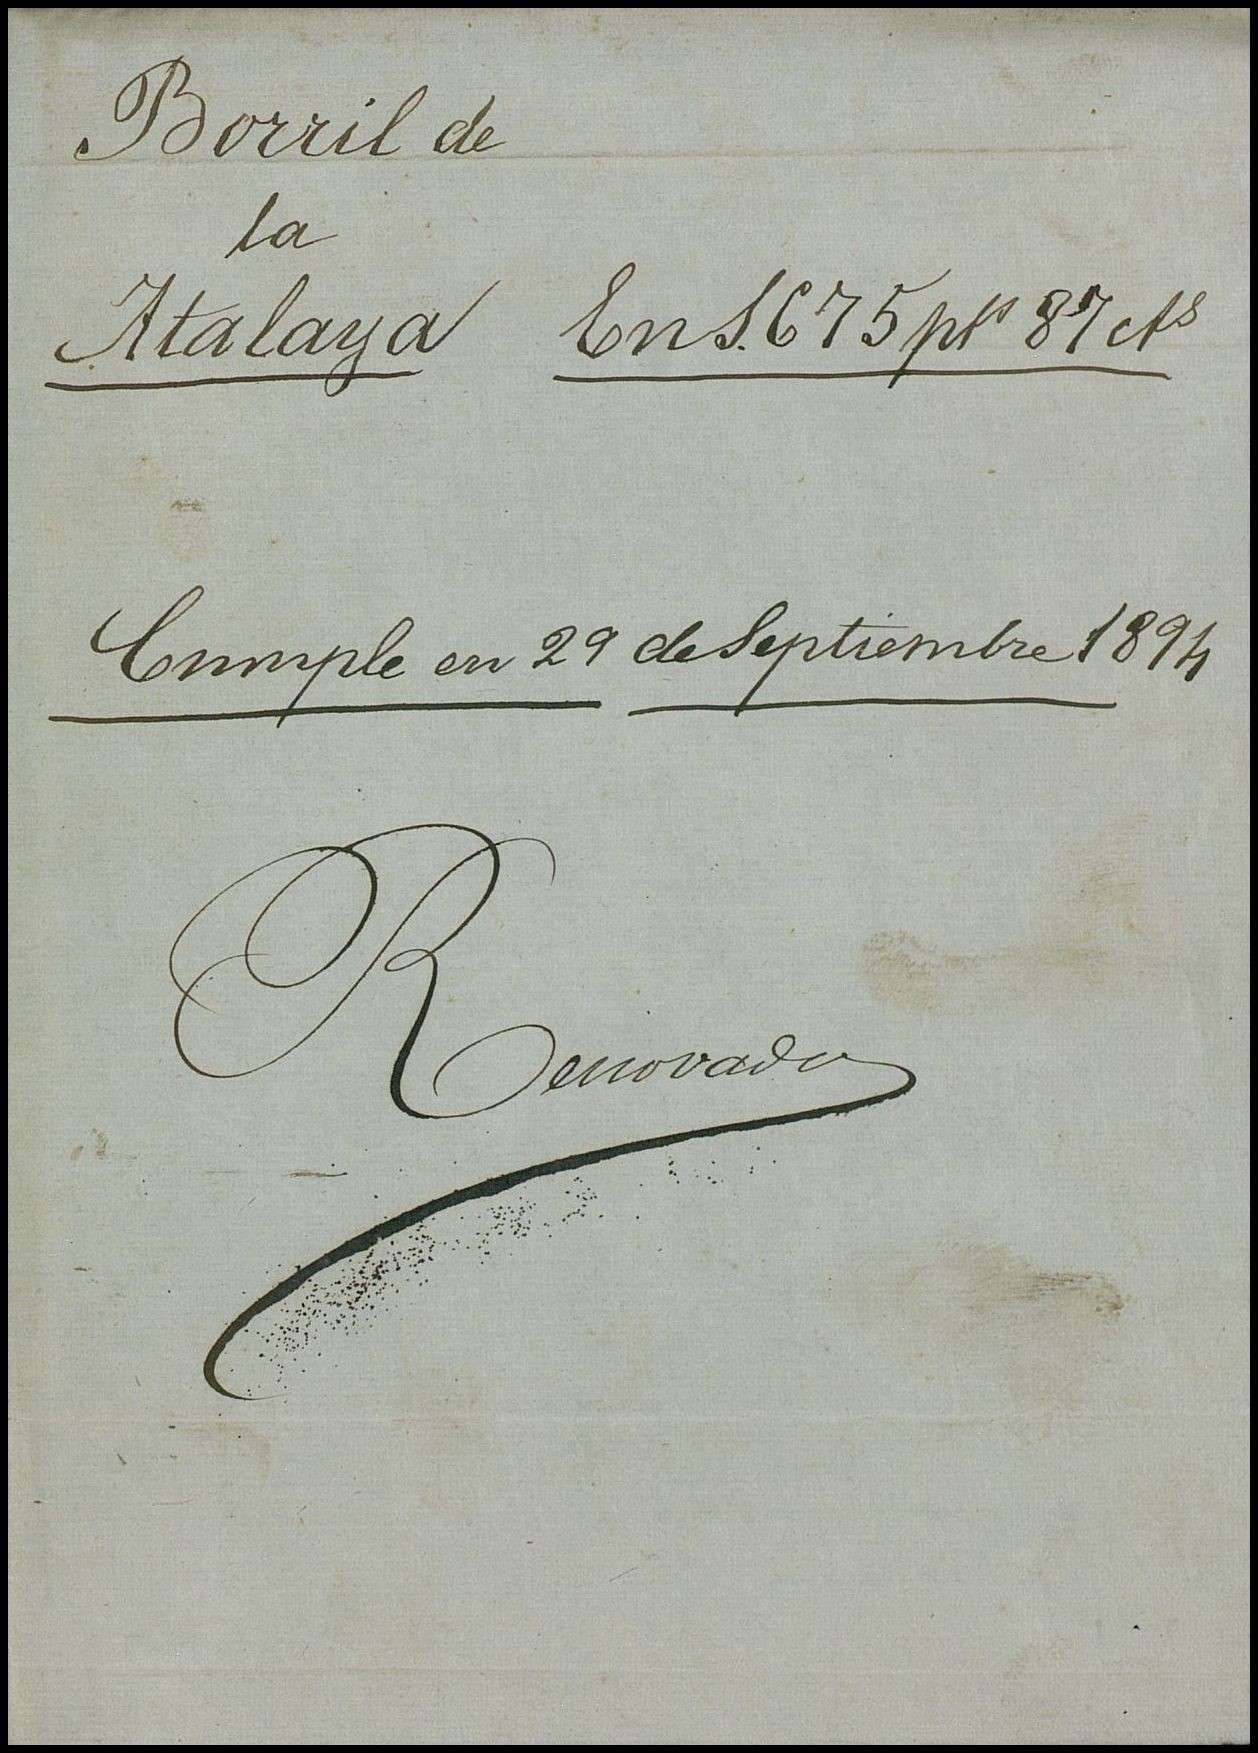 Borril de
la
Atalaya En 1.675 pts 87 cts
Cumple en 29 de Septiembre 1894
Renovado